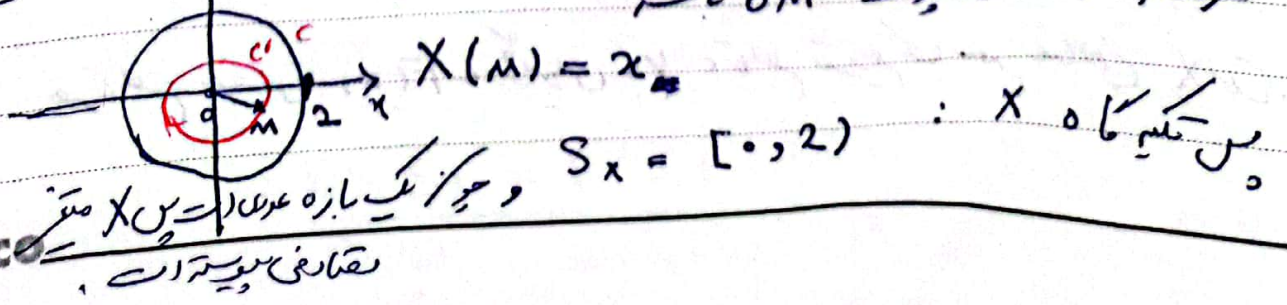 C' C
X(M) = x
O M 2 x
پس تکیه گاه X : S_x = [0, 2)
و چون یک بازه عددی است پس X متغیر
تصادفی پیوسته است.
CO